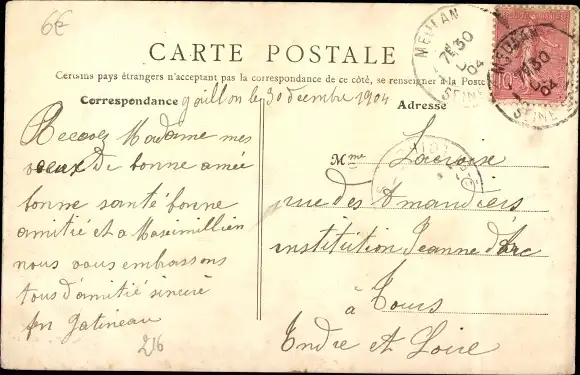 6€
CARTE POSTALE
Certains pays étrangers n'acceptant pas la correspondance de ce côté, se renseigner à la Poste
Correspondance
gaillon le 30 décembre 1904
Adresse
MEULAN
7E 30
04
SEINE
MEULAN
7E 30
04
SEINE
10c
Recevez Madame mes
voeux de bonne année
bonne santé bonne
amitié et a Maximillien
nous vous embrassons
tous d'amitié sincère
fen Gatineau
216
Mme Lacroise
rue des Amandiers
institution Jeanne d'Arc
à Tours
Indre et Loire